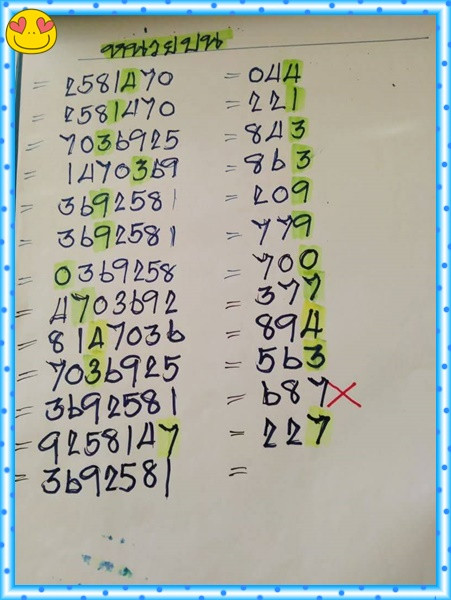 หน่วยบน
= 2581470 = 044
= 2581470 = 221
= 7036925 = 843
= 1470369 = 863
= 3692581 = 209
= 3692581 = 779
= 0369258 = 700
= 4703692 = 377
= 8147036 = 894
= 7036925 = 563
= 3692581 = 687 ×
= 9258147 = 227
= 3692581 =